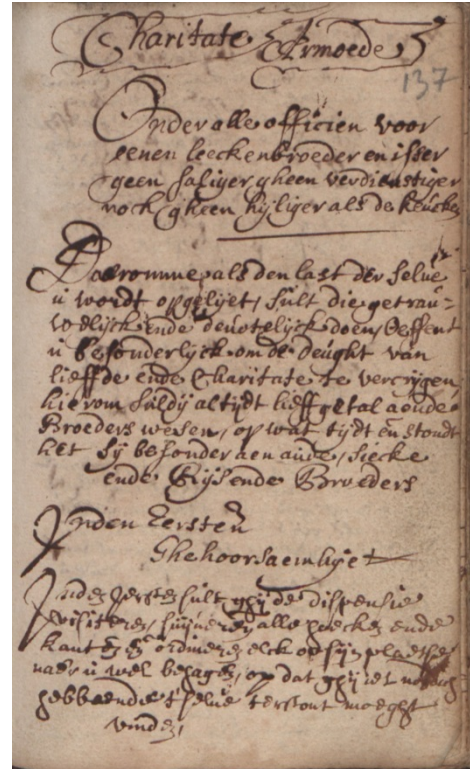 Charitate Ermoede
137
Onder alle officien voor
eenen leeckenbroeder en isser
geen saliger gheen verdienstiger
noch gheen hijliger als de keucke
Daeromme als den last der selve
u wordt opgelijet, sult die getrau=
welijck ende devotelijck doen, Oeffent
u besonderlijck om de deught van
lieffde ende Charitate te vercrijgen,
hierom suldij altijdt lieffgetal aen de
Broeders wesen, op wat tijdt en stondt
het sij besonder aen aude, siecke
ende Rijsende Broeders
Inden Eersten
Ghehoorsaemhijet
Inden yersten sult ghij de dispensie
visiteren, suijneren alle hoecken ende
kanten en ordineren elck op sijn plaetse
naer u wel behagen, op dat ghij iet
hebbende t'selve terstont moeght
vinden,